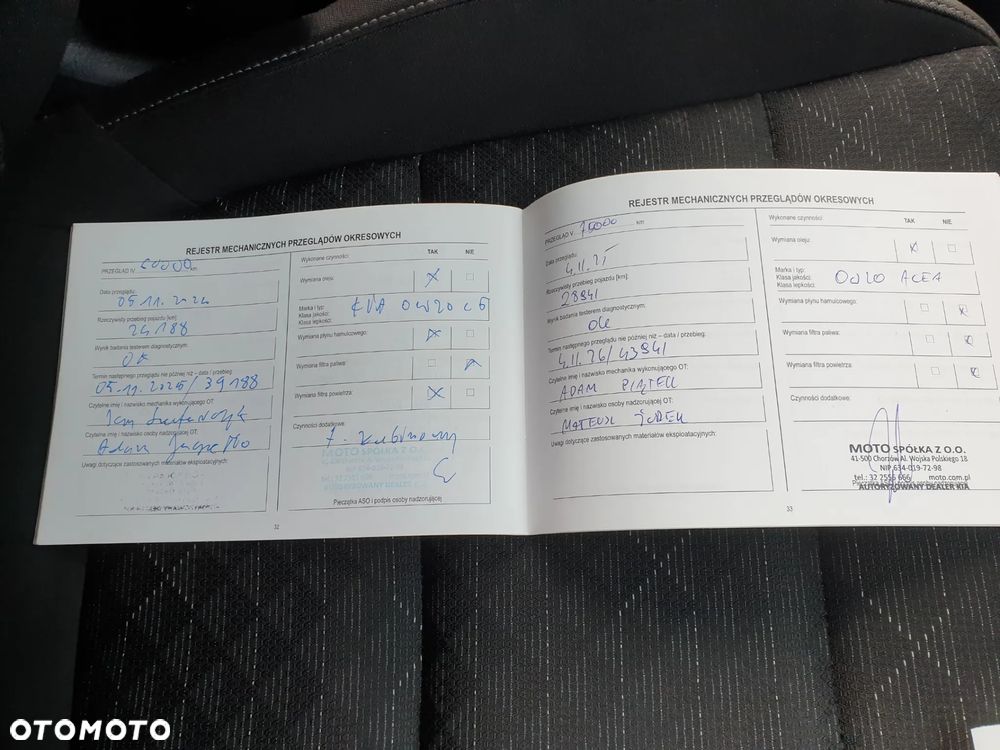 REJESTR MECHANICZNYCH PRZEGLĄDÓW OKRESOWYCH
PRZEGLĄD IV 60000 km
Data przeglądu:
05.11.2024
Rzeczywisty przebieg pojazdu [km]:
24188
Wynik badania testerem diagnostycznym:
OK
Termin następnego przeglądu nie później niż – data / przebieg:
05.11.2025/39188
Czytelne imię i nazwisko mechanika wykonującego OT:
Jan
Czytelne imię i nazwisko osoby nadzorującej OT:
Adam
Uwagi dotyczące zastosowanych materiałów eksploatacyjnych:
Wykonane czynności: TAK NIE
Wymiana oleju: X
Marka i typ:
Klasa jakości:
Klasa lepkości:
KIA 0W20 C5
Wymiana płynu hamulcowego: X
Wymiana filtra paliwa: X
Wymiana filtra powietrza: X
Czynności dodatkowe:
f. kabinowy
MOTO SPÓŁKA Z O.O.
NIP 634-019-72-98
AUTORYZOWANY DEALER KIA
Pieczątka ASO i podpis osoby nadzorującej
32
REJESTR MECHANICZNYCH PRZEGLĄDÓW OKRESOWYCH
PRZEGLĄD V 75000 km
Data przeglądu:
4.11.25
Rzeczywisty przebieg pojazdu [km]:
28941
Wynik badania testerem diagnostycznym:
ok
Termin następnego przeglądu nie później niż – data / przebieg:
4.11.26/43941
Czytelne imię i nazwisko mechanika wykonującego OT:
ADAM PIĄTEK
Czytelne imię i nazwisko osoby nadzorującej OT:
MATEUSZ
Uwagi dotyczące zastosowanych materiałów eksploatacyjnych:
Wykonane czynności: TAK NIE
Wymiana oleju: X
Marka i typ:
Klasa jakości:
Klasa lepkości:
0W20 ACEA
Wymiana płynu hamulcowego: X
Wymiana filtra paliwa: X
Wymiana filtra powietrza: X
Czynności dodatkowe:
MOTO SPÓŁKA Z O.O.
41-500 Chorzów Al. Wojska Polskiego 18
NIP 634-019-72-98
tel.: 32 2555 666 moto.com.pl
Pieczątka ASO i podpis osoby nadzorującej
AUTORYZOWANY DEALER KIA
33
OTOMOTO